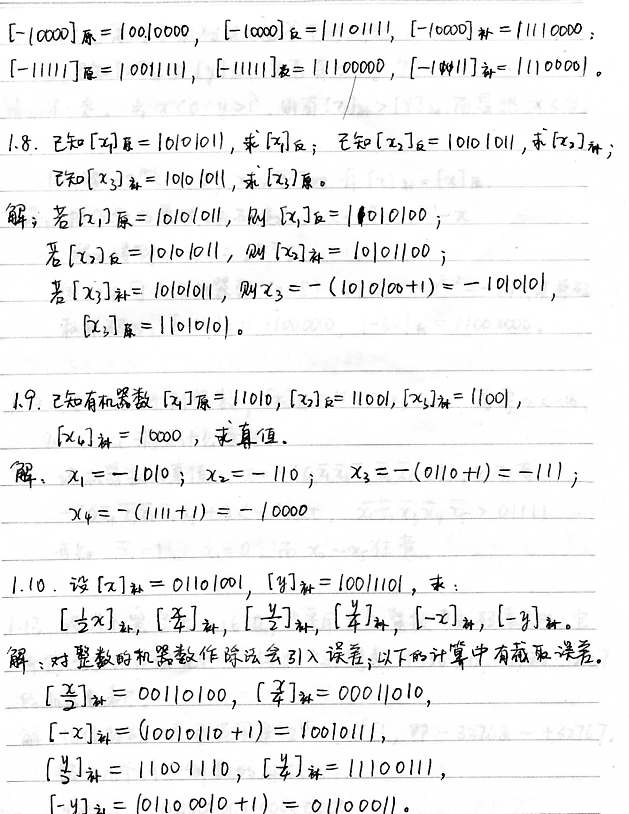 [-10000]原=10010000, [-10000]反=11101111, [-10000]补=11110000;
[-11111]原=10011111, [-11111]反=11100000, [-11111]补=11100001。
1.8. 已知[x₁]原=10101011,求[x₁]反; 已知[x₂]反=10101011,求[x₂]补;
已知[x₃]补=10101011,求[x₃]原。
解: 若[x₁]原=10101011, 则[x₁]反=11010100;
若[x₂]反=10101011, 则[x₂]补=10101100;
若[x₃]补=10101011, 则x₃=-(1010100+1)=-1010101,
[x₃]原=11010101。
1.9. 已知有机器数[x₁]原=11010, [x₂]反=11001, [x₃]补=11001,
[x₄]补=10000, 求真值.
解. x₁=-1010; x₂=-110; x₃=-(0110+1)=-111;
x₄=-(1111+1)=-10000
1.10. 设[x]补=01101001, [y]补=10011101, 求:
[½x]补, [x/4]补, [y/2]补, [y/4]补, [-x]补, [-y]补。
解:对整数的机器数作除法会引入误差;以下的计算中有截取误差。
[x/2]补=00110100, [x/4]补=00011010,
[-x]补=(10010110+1)=10010111,
[y/2]补=11001110, [y/4]补=11100111,
[-y]补=(01100010+1)=01100011。